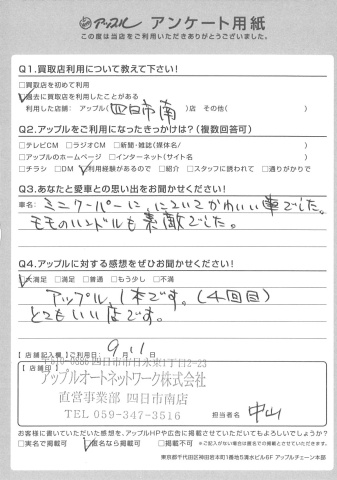 アップル アンケート用紙
この度は当店をご利用いただきありがとうございました。
Q1.買取店利用について教えて下さい!
□買取店を初めて利用
☑過去に買取店を利用したことがある
利用した店舗: アップル( 四日市南 )店 その他( )
Q2.アップルをご利用になったきっかけは?(複数回答可)
□テレビCM □ラジオCM □新聞・雑誌(媒体名/ )
□アップルのホームページ □インターネット(サイト名 )
□チラシ □DM ☑利用経験があるので □紹介 □スタッフに誘われて □通りがかりで
Q3.あなたと愛車との思い出をお聞かせください!
車名: ミニクーパーに、にていてかわいい車でした。
モモのハンドルも素敵でした。
Q4.アップルに対する感想をぜひお聞かせください!
☑大満足 □満足 □普通 □もう少し □不満
アップル、1本です。(4回目)
とてもいい店です。
【店舗記入欄】ご利用日: 9月11日
【店舗印】
四日市市日永東1丁目3-23
アップルオートネットワーク株式会社
直営事業部 四日市南店
TEL 059-347-3516
担当者名 中山
お客様に書いていただいた感想を、アップルHPや広告に掲載させていただいてもよろしいでしょうか?
□実名で掲載可 ☑匿名なら掲載可 □掲載不可 ※ご記入がない場合は匿名での掲載とさせていただきます。
東京都千代田区神田岩本町1番地5清水ビル6F アップルチェーン本部